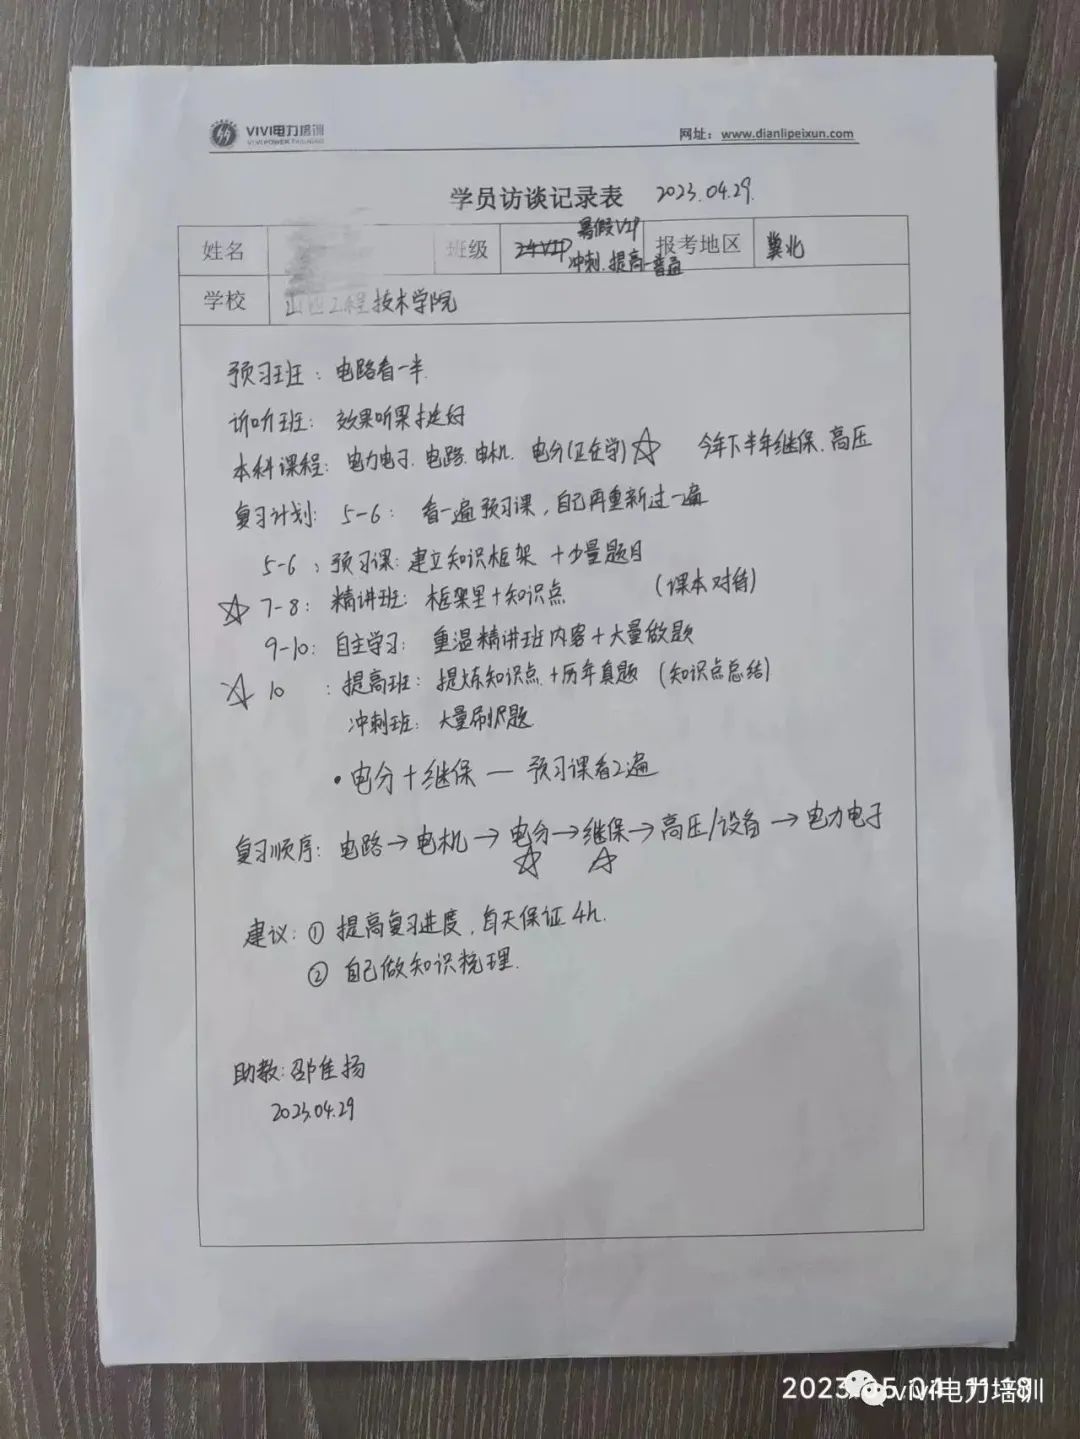 VIVI电力培训
VIVI POWER TRAINING
网址：www.dianlipeixun.com
学员访谈记录表 2023.04.29.
姓名 班级 24VIP 暑假VIP 冲刺.提高-普通 报考地区 冀北
学校 山西工程技术学院
预习班：电路看一半.
诉听班：效果听果挺好
本科课程：电力电子.电路.电机.电分(正在学)☆ 今年下半年继保.高压
复习计划：5-6：看一遍预习课，自己再重新过一遍
5-6：预习课：建立知识框架+少量题目
☆7-8：精讲班：框架里+知识点 (课本对待)
9-10：自主学习：重温精讲班内容+大量做题
☆10：提高班：提炼知识点+历年真题 (知识点总结)
冲刺班：大量刷题
•电分+继保—预习课看2遍
复习顺序：电路→电机→电分→继保→高压/设备→电力电子
☆ ☆
建议：① 提高复习进度，每天保证4h.
② 自己做知识梳理.
助教：邵佳扬
2023.04.29
2023.05.04 11:18
vivi电力培训